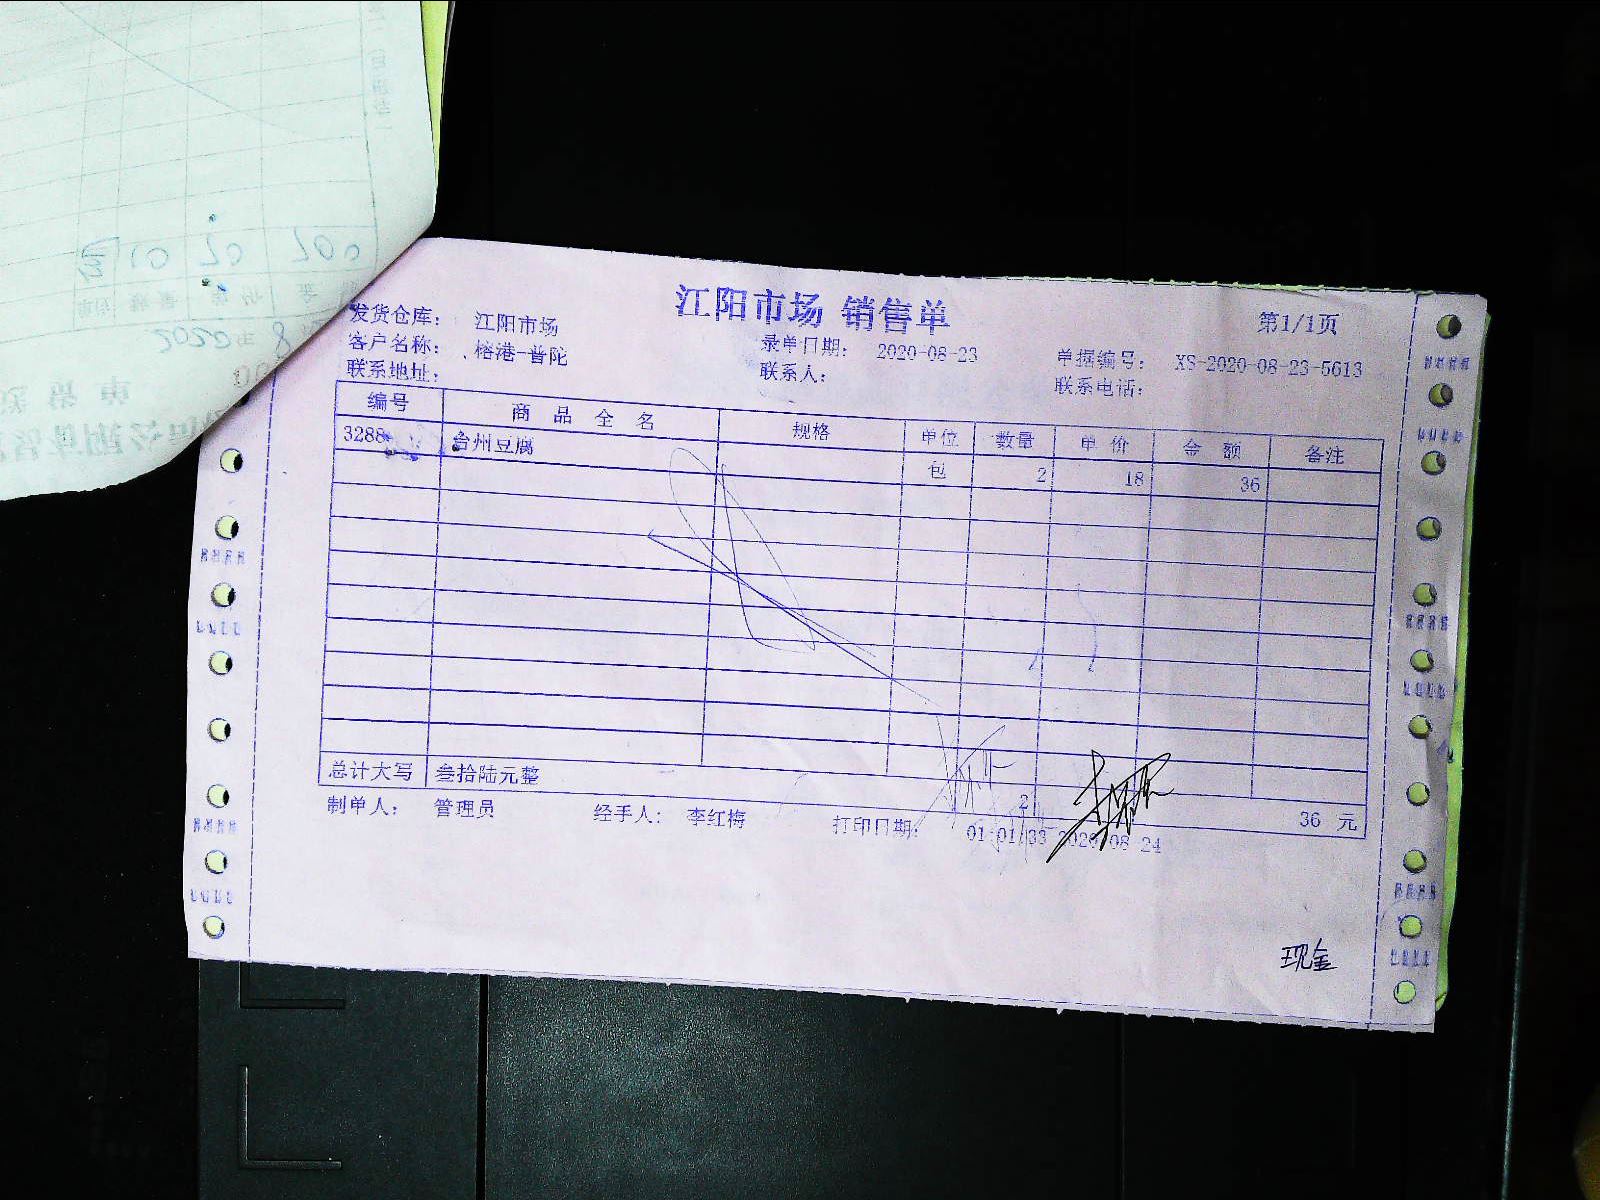 江阳市场 销售单
第1/1页
发货仓库: 江阳市场
客户名称: 榕港-普陀 录单日期: 2020-08-23 单据编号: XS-2020-08-23-5613
联系地址: 联系人: 联系电话:
编号 商品全名 规格 单位 数量 单价 金额 备注
3288 台州豆腐 包 2 18 36
总计大写 叁拾陆元整 2 36 元
制单人: 管理员 经手人: 李红梅 打印日期: 01:01:33 2020-08-24
现金